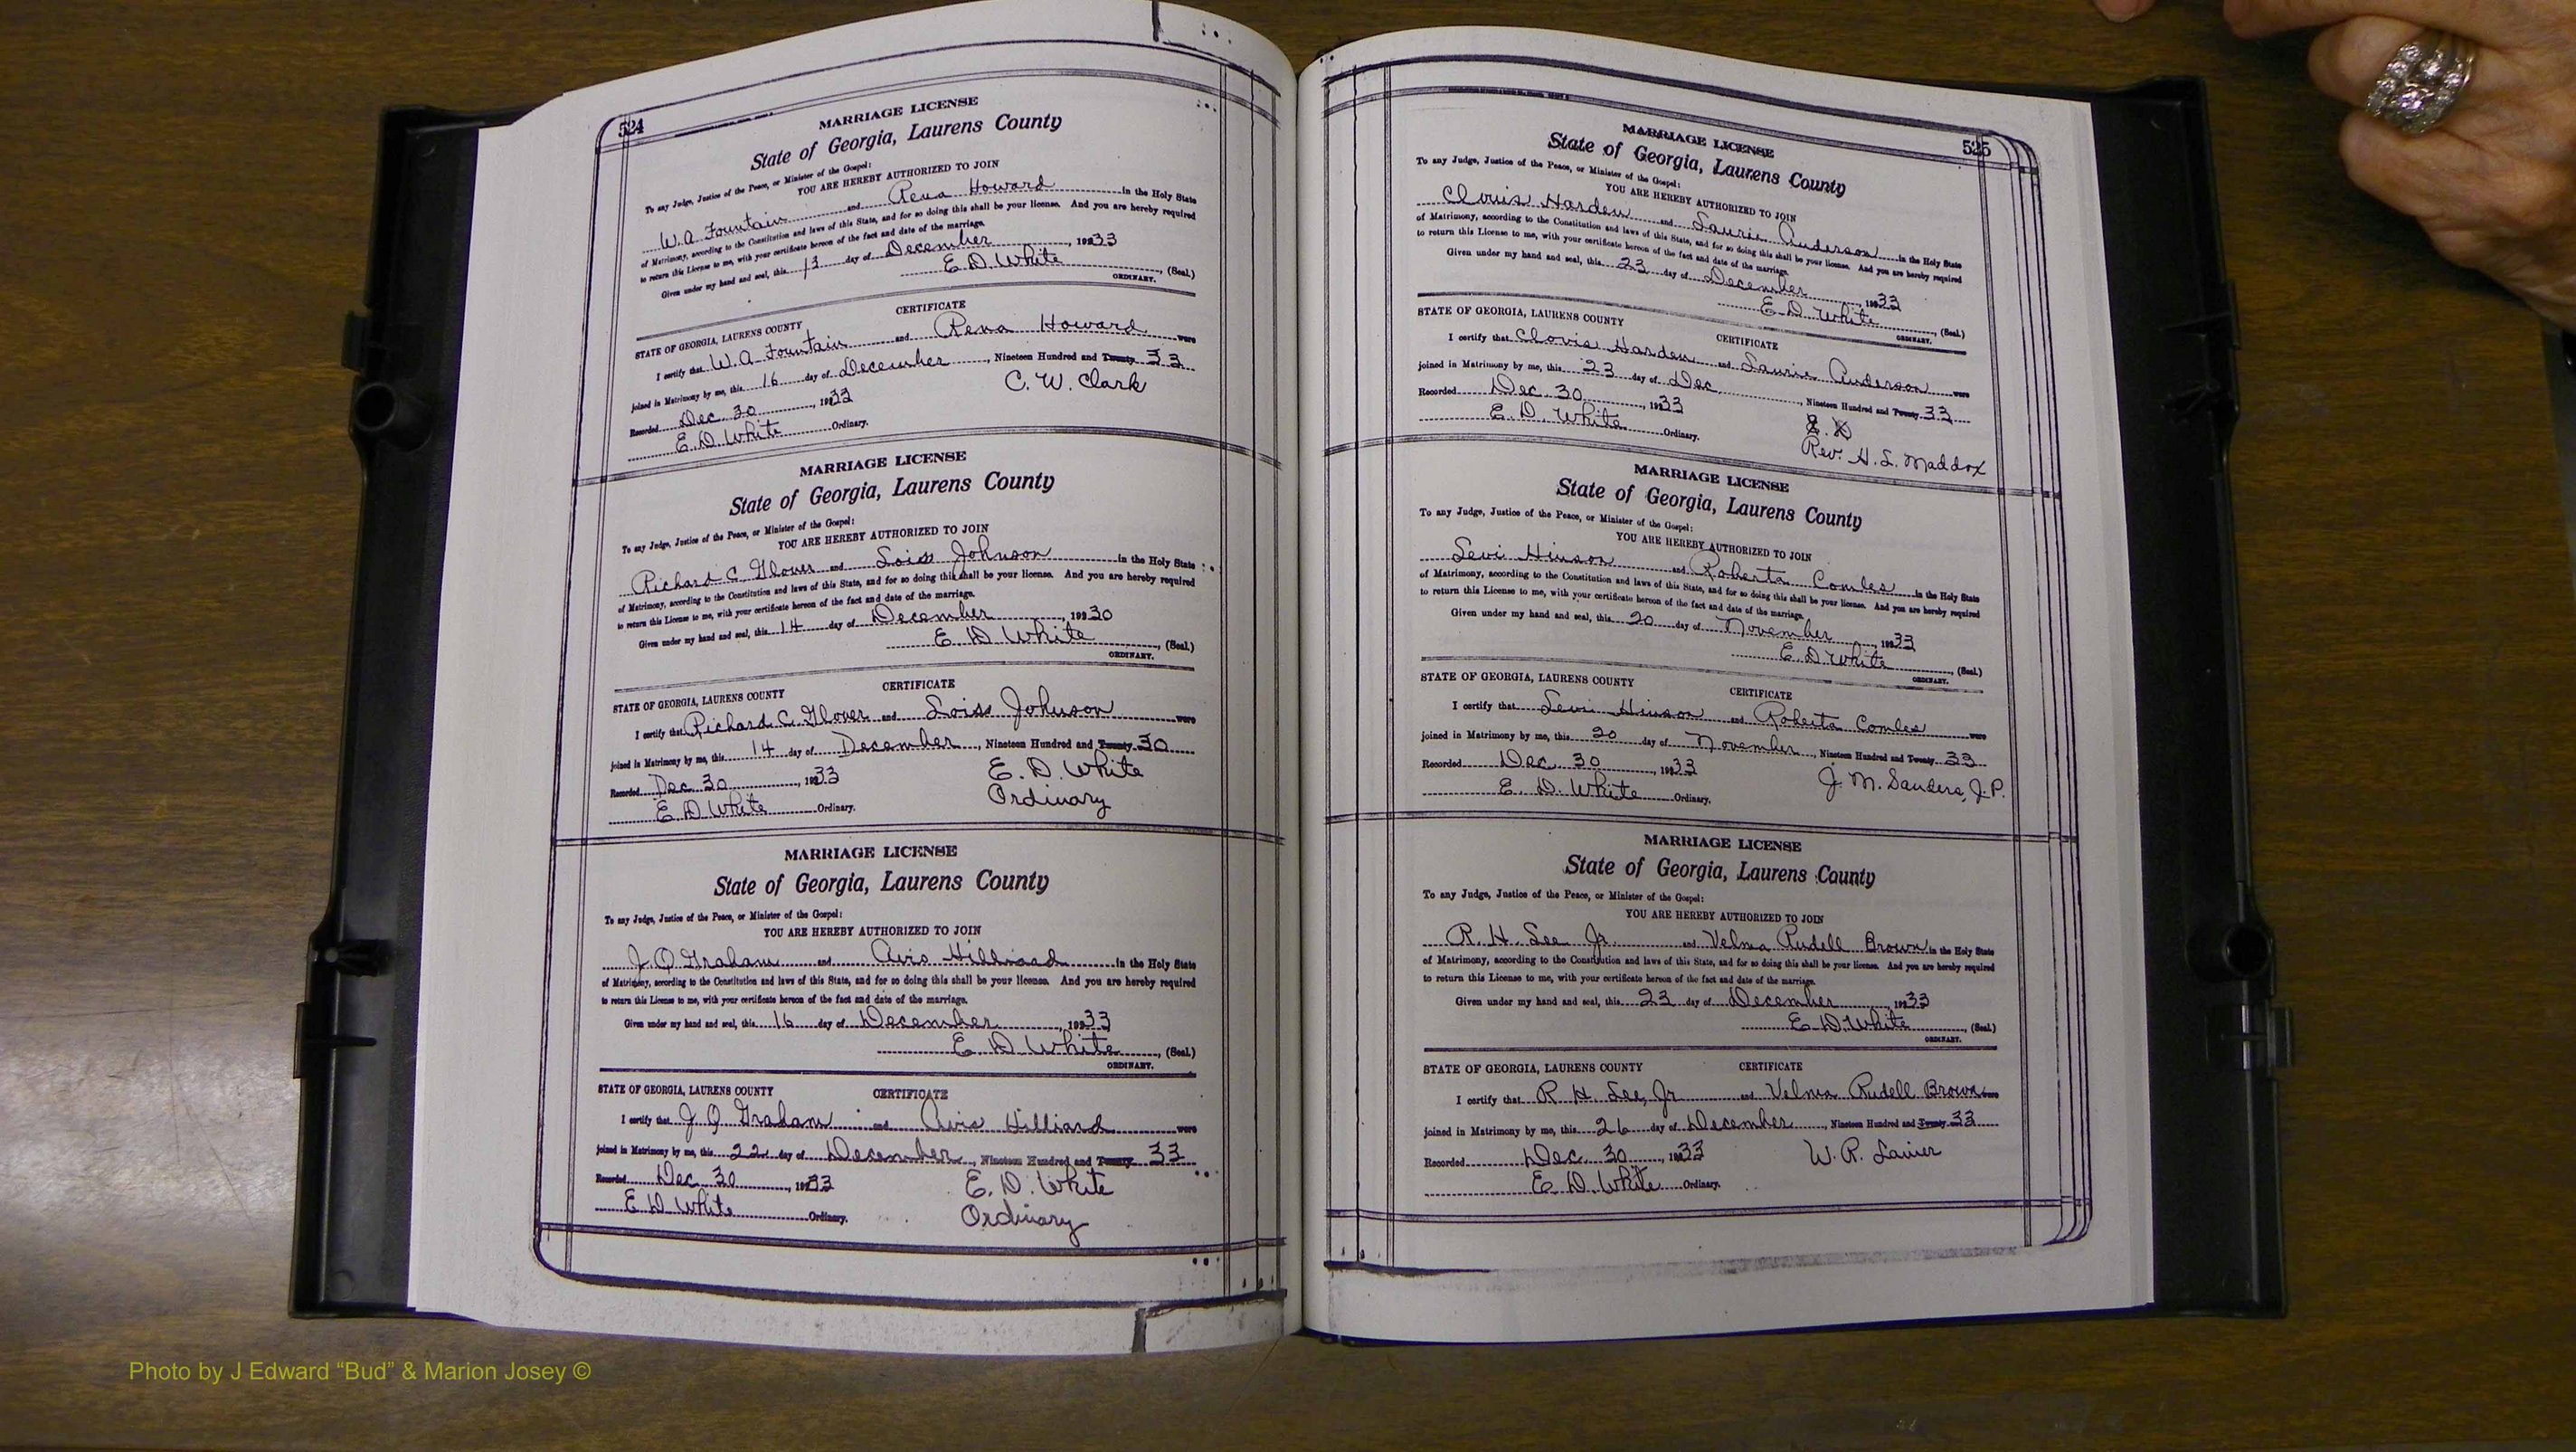 524
MARRIAGE LICENSE
State of Georgia, Laurens County
To any Judge, Justice of the Peace, or Minister of the Gospel:
YOU ARE HEREBY AUTHORIZED TO JOIN
W. A Fountain and Rena Howard in the Holy State
of Matrimony, according to the Constitution and laws of this State, and for so doing this shall be your license. And you are hereby required
to return this License to me, with your certificate hereon of the fact and date of the marriage.
Given under my hand and seal, this 13 day of December, 1933
E. D. White, (Seal.)
ORDINARY.
CERTIFICATE
STATE OF GEORGIA, LAURENS COUNTY
I certify that W. A Fountain and Rena Howard were
joined in Matrimony by me, this 16 day of December, Nineteen Hundred and Twenty 33
Recorded Dec 30, 1933
C. W. Clark
E. D. White Ordinary.
MARRIAGE LICENSE
State of Georgia, Laurens County
To any Judge, Justice of the Peace, or Minister of the Gospel:
YOU ARE HEREBY AUTHORIZED TO JOIN
Richard C. Glover and Loiss Johnson in the Holy State
of Matrimony, according to the Constitution and laws of this State, and for so doing this shall be your license. And you are hereby required
to return this License to me, with your certificate hereon of the fact and date of the marriage.
Given under my hand and seal, this 14 day of December, 1930
E. D. White, (Seal.)
ORDINARY.
CERTIFICATE
STATE OF GEORGIA, LAURENS COUNTY
I certify that Richard C. Glover and Loiss Johnson were
joined in Matrimony by me, this 14 day of December, Nineteen Hundred and Twenty 30
Recorded Dec. 30, 1933
E. D. White
E. D. White Ordinary.
Ordinary
MARRIAGE LICENSE
State of Georgia, Laurens County
To any Judge, Justice of the Peace, or Minister of the Gospel:
YOU ARE HEREBY AUTHORIZED TO JOIN
J. Q Graham and Avis Hilliard in the Holy State
of Matrimony, according to the Constitution and laws of this State, and for so doing this shall be your license. And you are hereby required
to return this License to me, with your certificate hereon of the fact and date of the marriage.
Given under my hand and seal, this 16 day of December, 1933
E. D. White, (Seal.)
ORDINARY.
STATE OF GEORGIA, LAURENS COUNTY CERTIFICATE
I certify that J Q Graham and Avis Hilliard were
joined in Matrimony by me, this 22 day of December, Nineteen Hundred and Twenty 33
Recorded Dec 30, 1933
E. D. White
E. D. White Ordinary.
Ordinary
525
MARRIAGE LICENSE
State of Georgia, Laurens County
To any Judge, Justice of the Peace, or Minister of the Gospel:
YOU ARE HEREBY AUTHORIZED TO JOIN
Clovis Harden and Laurie Anderson in the Holy State
of Matrimony, according to the Constitution and laws of this State, and for so doing this shall be your license. And you are hereby required
to return this License to me, with your certificate hereon of the fact and date of the marriage.
Given under my hand and seal, this 23 day of December, 1933
E. D. White, (Seal.)
ORDINARY.
STATE OF GEORGIA, LAURENS COUNTY CERTIFICATE
I certify that Clovis Harden and Laurie Anderson were
joined in Matrimony by me, this 23 day of Dec, Nineteen Hundred and Twenty 33
Recorded Dec. 30, 1933
E. D
E. D. White Ordinary.
Rev. H. L. Maddox
MARRIAGE LICENSE
State of Georgia, Laurens County
To any Judge, Justice of the Peace, or Minister of the Gospel:
YOU ARE HEREBY AUTHORIZED TO JOIN
Levi Hinson and Roberta Combes in the Holy State
of Matrimony, according to the Constitution and laws of this State, and for so doing this shall be your license. And you are hereby required
to return this License to me, with your certificate hereon of the fact and date of the marriage.
Given under my hand and seal, this 20 day of November, 1933
E. D White, (Seal.)
ORDINARY.
STATE OF GEORGIA, LAURENS COUNTY CERTIFICATE
I certify that Levi Hinson and Roberta Combes were
joined in Matrimony by me, this 20 day of November, Nineteen Hundred and Twenty 33
Recorded Dec. 30, 1933
J. M. Sanders, J. P.
E. D. White Ordinary.
MARRIAGE LICENSE
State of Georgia, Laurens County
To any Judge, Justice of the Peace, or Minister of the Gospel:
YOU ARE HEREBY AUTHORIZED TO JOIN
R. H. Lee Jr. and Velma Rudell Brown in the Holy State
of Matrimony, according to the Constitution and laws of this State, and for so doing this shall be your license. And you are hereby required
to return this License to me, with your certificate hereon of the fact and date of the marriage.
Given under my hand and seal, this 23 day of December, 1933
E. D. White, (Seal.)
ORDINARY.
STATE OF GEORGIA, LAURENS COUNTY CERTIFICATE
I certify that R. H. Lee, Jr and Velma Rudell Brown were
joined in Matrimony by me, this 26 day of December, Nineteen Hundred and Twenty 33
Recorded Dec 30, 1933
W. R. Lanier
E. D. White Ordinary.
Photo by J Edward “Bud” & Marion Josey ©